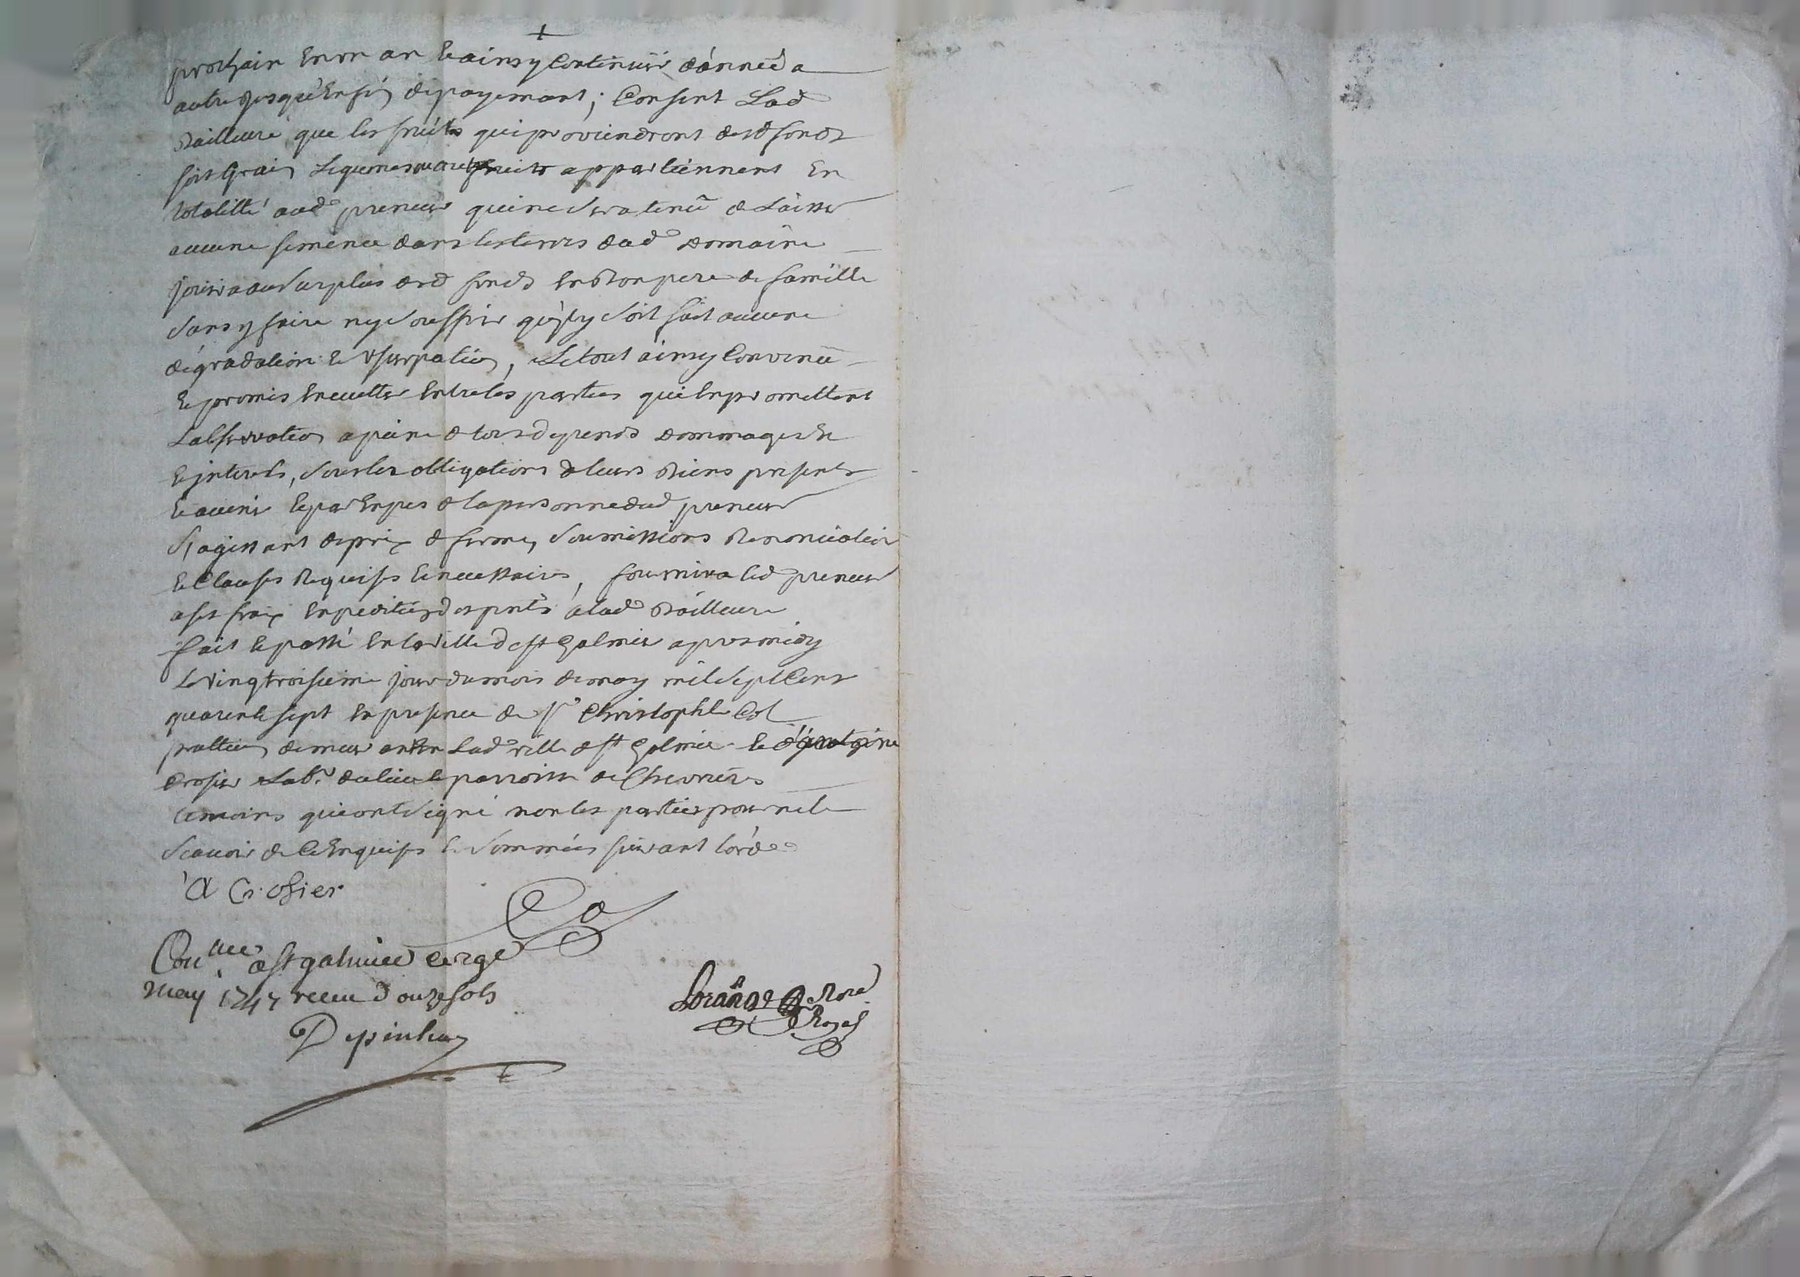 prochain en un an et ainsy continuer d'année a
autre jusqu'en fin de payement; Consent Lad
Bailleure que les fruits qui proviendront desd fonds
soit Grain Legumes ou autres fruits appartiennent En
totallité aud preneur qui ne sera tenu de Laisser
aucune semence dans les terres dud domaine
jouira au surplus desd fonds en bon pere de famille
sans y faire ny souffrir qu'il y soit fait aucune
dégradation et Usurpation, Le tout ainsy Convenu
Et promis Entre les parties qui En promettent
Lobservation a peine de tous depends dommages Et
Et jnterets, sous les obligations de leurs Biens presents
Et avenir Et par Expres de la personne dud preneur
s'agissant de prix de ferme, soumissions Renonciation
Et Clauses Requises Et necessaires, fournira led preneur
a ses frais Expedition des pntes a lad Bailleure
fait Et passé En la ville de st Galmier apres midy
Le vingt troisieme jour du mois de may mil sept Cent
quarente sept En presence de sr Christophle Col
praticien demeurant En Lad ville de st Galmier Et d'antoine
Crosier Labr. du lieu Et parroisse de Chevrieres
temoins qui ont signé non les parties pour ne le
scavoir de Ce Enquises Et sommées suivant Lord
A Crosier
Con.lle a st galmier ce
may 1747 receu douze sols
Depinhac
Royal